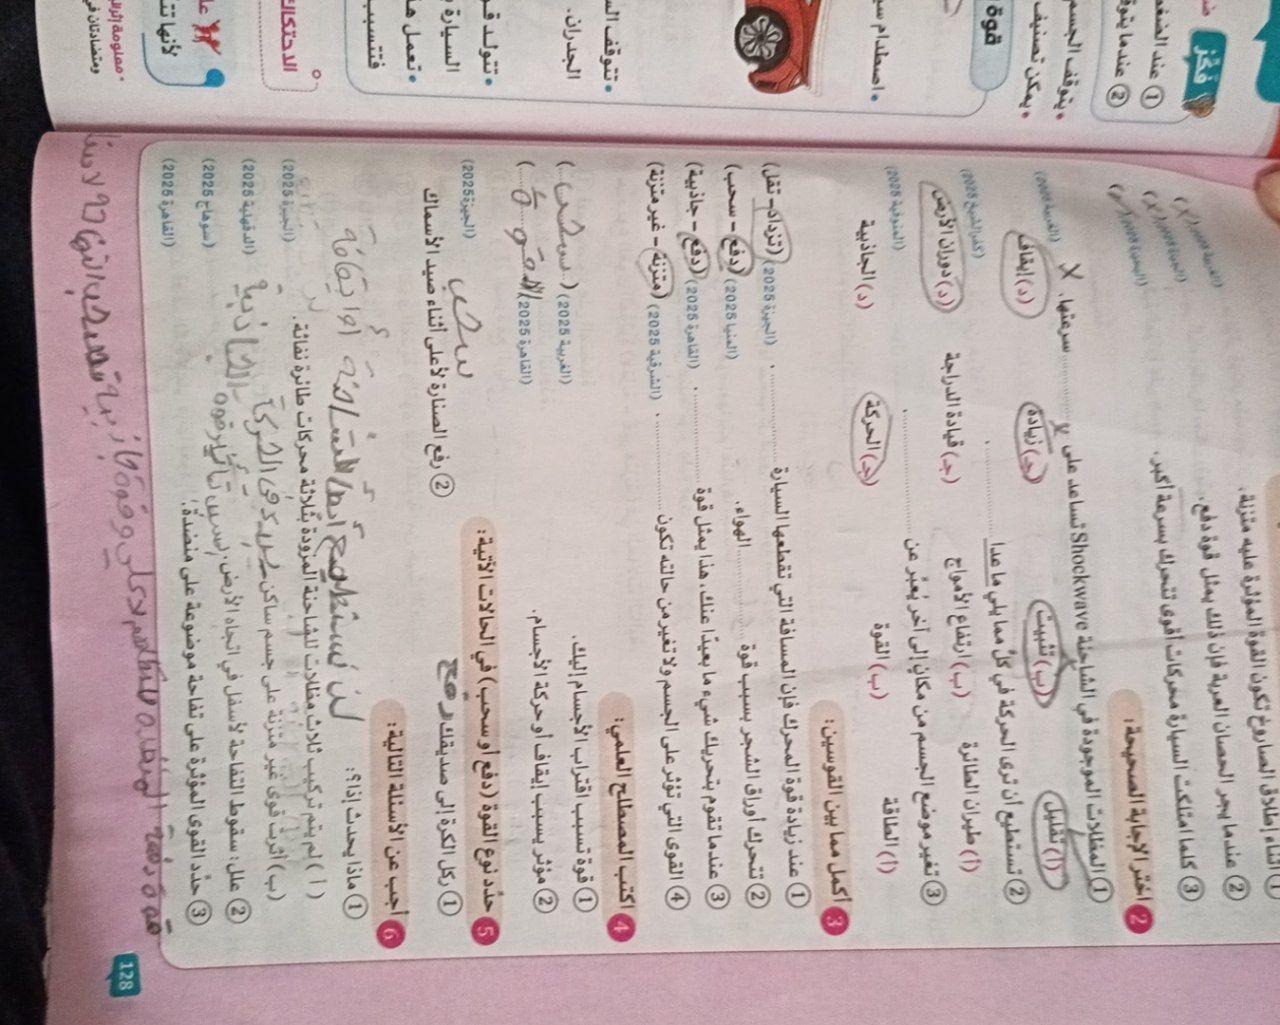 ① أثناء إطلاق الصاروخ تكون القوة المؤثرة عليه متزنة. (الغربية 2025) (x)
② عندما يجر الحصان العربة فإن ذلك يمثل قوة دفع. (x)
③ كلما امتلكت السيارة محركات أقوى تتحرك بسرعة أكبر. (✓)
2 اختر الإجابة الصحيحة:
① المظلات الموجودة في الشاحنة Shockwave تساعد على ............ سرعتها. (الغربية 2025)
(أ) تقليل (ب) تثبيت (جـ) زيادة (د) إيقاف
② تستطيع أن ترى الحركة في كل مما يلي ما عدا ............ . (كفر الشيخ 2025)
(أ) طيران الطائرة (ب) ارتفاع الأمواج (جـ) قيادة الدراجة (د) دوران الأرض
③ تغير موضع الجسم من مكان إلى آخر يُعبِّر عن ............ . (المنوفية 2025)
(أ) الطاقة (ب) القوة (جـ) الحركة (د) الجاذبية
3 أكمل مما بين القوسين:
① عند زيادة قوة المحرك فإن المسافة التي تقطعها السيارة ............ . (الجيزة 2025) (تزداد – تقل)
② تتحرك أوراق الشجر بسبب قوة ............ الهواء. (المنيا 2025) (دفع – سحب)
③ عندما تقوم بتحريك شيء ما بعيدًا عنك، هذا يمثل قوة ............ . (القاهرة 2025) (دفع – جاذبية)
④ القوى التي تؤثر على الجسم ولا تغير من حالته تكون ............ . (الشرقية 2025) (متزنة – غير متزنة)
4 اكتب المصطلح العلمي:
① قوة تسبب اقتراب الأجسام إليك. (الغربية 2025) (سحب)
② مؤثر يسبب إيقاف أو حركة الأجسام. (القاهرة 2025) (القوى)
5 حدد نوع القوة (دفع أو سحب) في الحالات الآتية:
① ركل الكرة إلى صديقك. دفع ② رفع الصنارة لأعلى أثناء صيد الأسماك سحب (الجيزة 2025)
6 أجب عن الأسئلة التالية:
① ماذا يحدث إذا؟:
لن نستطيع إبطاء الشاحنة أو إيقافها
(أ) لم يتم تركيب ثلاث مظلات للشاحنة المزودة بثلاثة محركات طائرة نفاثة. (الجيزة 2025)
(ب) أثرت قوى غير متزنة على جسم ساكن. (الدقهلية 2025)
② علل: سقوط التفاحة لأسفل في اتجاه الأرض. (سوهاج 2025)
بسبب تأثير قوة الجاذبية
③ حدد القوى المؤثرة على تفاحة موضوعة على منضدة. (القاهرة 2025)
128
فكّر
① عند الضغط
② عندما يتوقف
• يتوقف الجسم
• يمكن تصنيف
قوة
• اصطدام
• تتوقف
الجدران.
• تتولد
السيارة
• تعمل
فتتسبب
الاحتكاك
لأنها
• معلومة إثرائية
ومتضادتان في